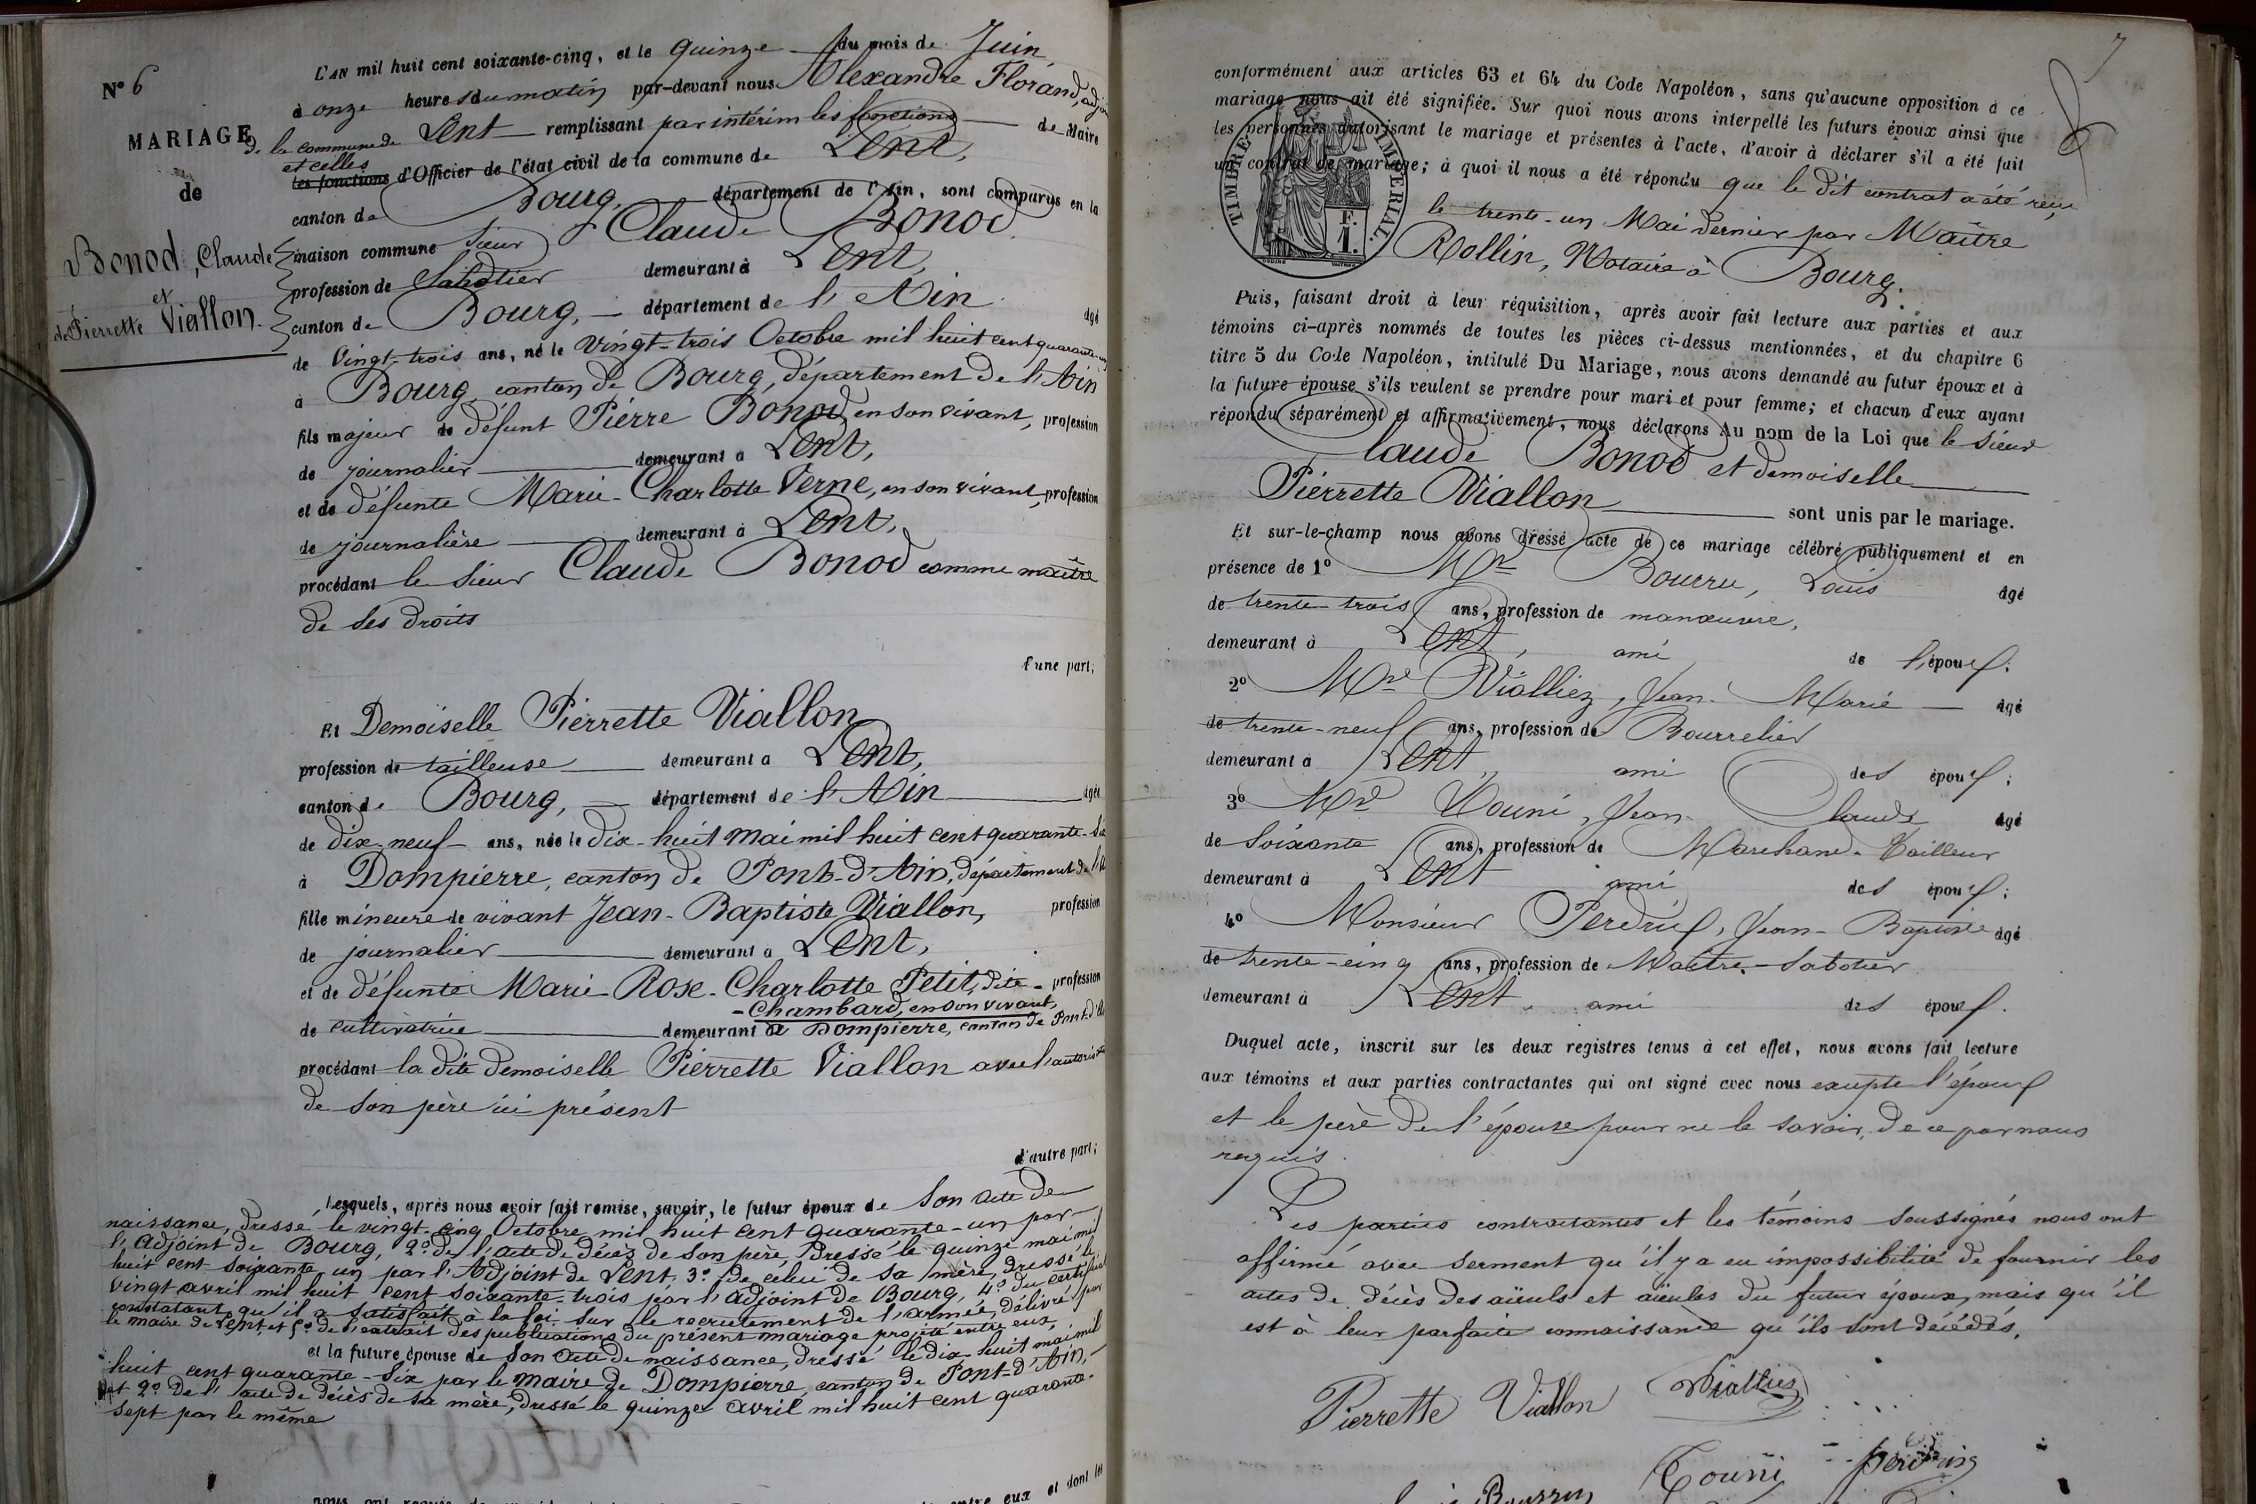 N° 6
MARIAGE
de
Bonod, Claude
et
de Pierrette Viallon.
L'AN mil huit cent soixante-cinq, et le quinze du mois de Juin
à onze heures du matin par-devant nous Alexandre Florand, adjoint
de la commune de Lent remplissant par intérim les fonctions de Maire
et celles
les fonctions d'Officier de l'état civil de la commune de Lent,
canton de Bourg, département de l'Ain, sont comparus en la
maison commune sieur Claude Bonod
profession de Sabotier demeurant à Lent,
canton de Bourg, département de l'Ain âgé
de vingt-trois ans, né le vingt-trois Octobre mil huit cent quarante-un
à Bourg, canton de Bourg, département de l'Ain
fils majeur de défunt Pierre Bonod, en son vivant, profession
de journalier demeurant à Lent,
et de défunte Marie-Charlotte Verne, en son vivant, profession
de journalière demeurant à Lent,
procédant le sieur Claude Bonod comme maître
de ses droits
d'une part;
Et Demoiselle Pierrette Viallon
profession de tailleuse demeurant à Lent,
canton de Bourg, département de l'Ain âgée
de dix-neuf ans, née le dix-huit mai mil huit cent quarante-six
à Dompierre, canton de Pont-d'Ain, département de l'Ain
fille mineure de vivant Jean-Baptiste Viallon, profession
de journalier demeurant à Lent,
et de défunte Marie-Rose-Charlotte Petit, dite profession
-Chambard, en son vivant,
de cultivatrice demeurant à Dompierre, canton de Pont-d'Ain
procédant la dite demoiselle Pierrette Viallon avec l'autorisation
de son père ici présent
d'autre part;
Lesquels, après nous avoir fait remise, savoir, le futur époux de son acte de
naissance, dressé le vingt-cinq Octobre mil huit cent quarante-un par
l'Adjoint de Bourg, 2° de l'acte de décès de son père, dressé le quinze mai mil
huit cent soixante un par l'Adjoint de Lent, 3° de celui de sa mère, dressé le
vingt avril mil huit cent soixante-trois par l'adjoint de Bourg, 4° du certificat
constatant qu'il a satisfait à la loi sur le recrutement de l'armée, délivré par
le maire de Lent, et 5° de l'extrait des publications du présent mariage projeté entre eux,
et la future épouse de son acte de naissance, dressé le dix-huit mai mil
huit cent quarante-six par le maire de Dompierre, canton de Pont-d'Ain,
et 2° de l'acte de décès de sa mère, dressé le quinze avril mil huit cent quarante-
sept par le même
7
conformément aux articles 63 et 64 du Code Napoléon, sans qu'aucune opposition à ce
mariage nous ait été signifiée. Sur quoi nous avons interpellé les futurs époux ainsi que
les personnes autorisant le mariage et présentes à l'acte, d'avoir à déclarer s'il a été fait
un contrat de mariage; à quoi il nous a été répondu que le dit contrat a été reçu
le trente-un Mai dernier par Maître
Rollin, Notaire à Bourg.
TIMBRE IMPÉRIAL
F.
1.
Puis, faisant droit à leur réquisition, après avoir fait lecture aux parties et aux
témoins ci-après nommés de toutes les pièces ci-dessus mentionnées, et du chapitre 6
titre 5 du Code Napoléon, intitulé Du Mariage, nous avons demandé au futur époux et à
la future épouse s'ils veulent se prendre pour mari et pour femme; et chacun d'eux ayant
répondu séparément et affirmativement, nous déclarons Au nom de la Loi que le Sieur
Claude Bonod et demoiselle
Pierrette Viallon sont unis par le mariage.
Et sur-le-champ nous avons dressé acte de ce mariage célébré publiquement et en
présence de 1° Mr Bourru, Louis âgé
de trente-trois ans, profession de manœuvre,
demeurant à Lent, ami de l'époux;
2° Mr Vialliez, Jean-Marie âgé
de trente-neuf ans, profession de Bourrelier
demeurant à Lent, ami des époux;
3° Mr Touni, Jean-Claude âgé
de soixante ans, profession de Marchand-Tailleur
demeurant à Lent ami des époux;
4° Monsieur Perdrix, Jean-Baptiste âgé
de trente-cinq ans, profession de Maître-Sabotier
demeurant à Lent, ami des époux.
Duquel acte, inscrit sur les deux registres tenus à cet effet, nous avons fait lecture
aux témoins et aux parties contractantes qui ont signé avec nous excepté l'époux
et le père de l'épouse pour ne le savoir, de ce par nous
requis.
Les parties contractantes et les témoins soussignés nous ont
affirmé avec serment qu'il y a eu impossibilité de fournir les
actes de décès des aïeuls et aïeules du futur époux, mais qu'il
est à leur parfaite connaissance qu'ils sont décédés.
Pierrette Viallon Vialliez
Touni Perdrix
Bourru